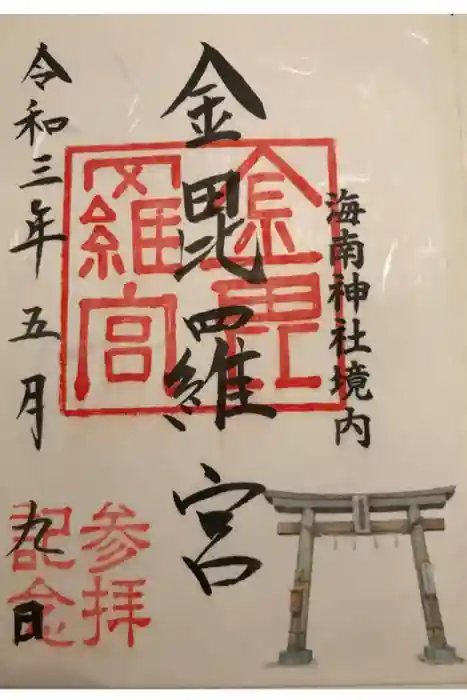 海南神社境内
金毘羅宮
金毘羅宮
参拝記念
令和三年五月九日